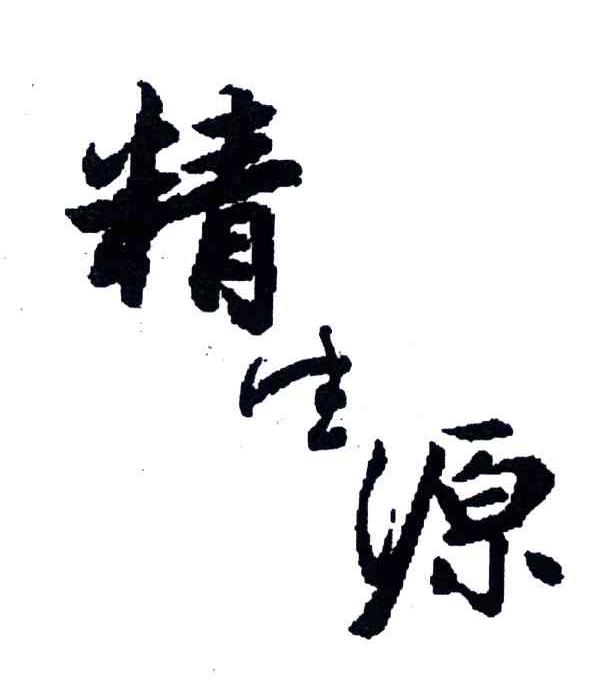 精生源